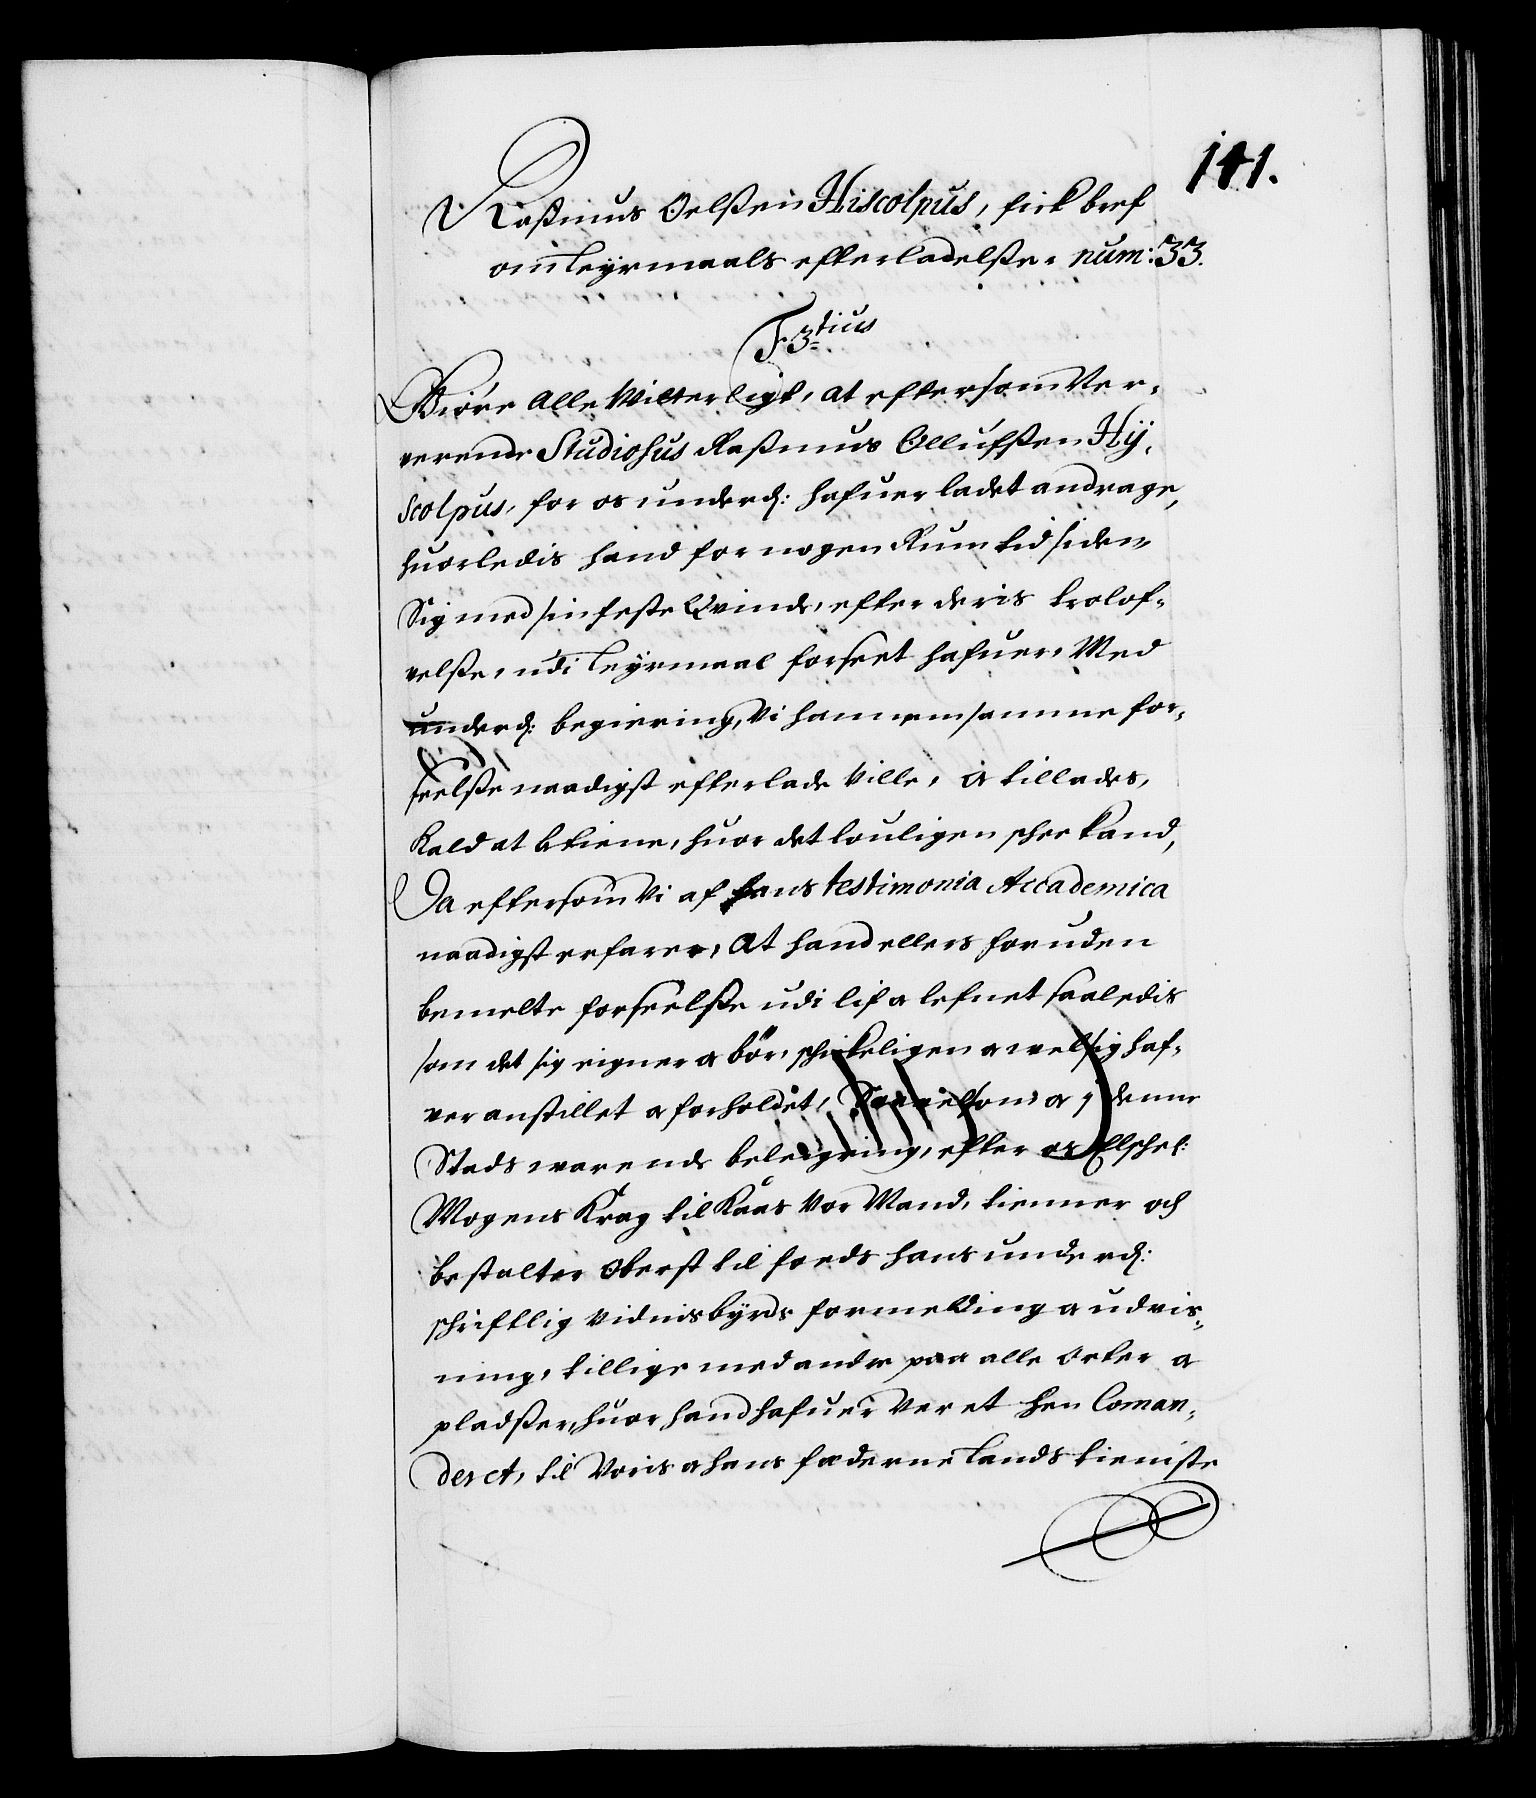 141.
Rasmus Oelßen Hiscolpus, fick bref
om leyermaals efterladelße. num: 33.
F. 3tius
Giöre Alle Witterligt, at eftersom Nær-
verende Studiosus Raßmus Ollufßen Hÿ-
scolpus, for os underd: hafuer ladet andrage,
huorledis hand for nogen Rum tid siden
Sig med sin feste Qvinde, efter deris trolof-
velße, udi leyrmaal forseet hafuer, Med
underd: begiering, Vi hannem samme for-
seelße naadigst efterlade Ville, og tillades,
Kald at betiene, huor det louligen schee kand,
Da eftersom Vi af hans testimonia Accademica
naadigst erfare, At hand ellers foruden
bemelte forseelße udi lif og lefnet saaledis
som det sig eigner og bör, schickeligen og vel sig haf-
ver anstillet og forholdet, Saavelsom og i denne
Stads warende beleyring, efter os Elschel:
Mogens Krag til Kaas Vor Mand, tienner och
bestalter Oberst til foeds hans underd:
schriftlig vidnisbyrds formelding og udvis-
ning, tillige med andre paa alle orter og
pladßer, huor hand hafuer Veret hen Coman-
deret, til Voris og hans fæderne lands tieniste